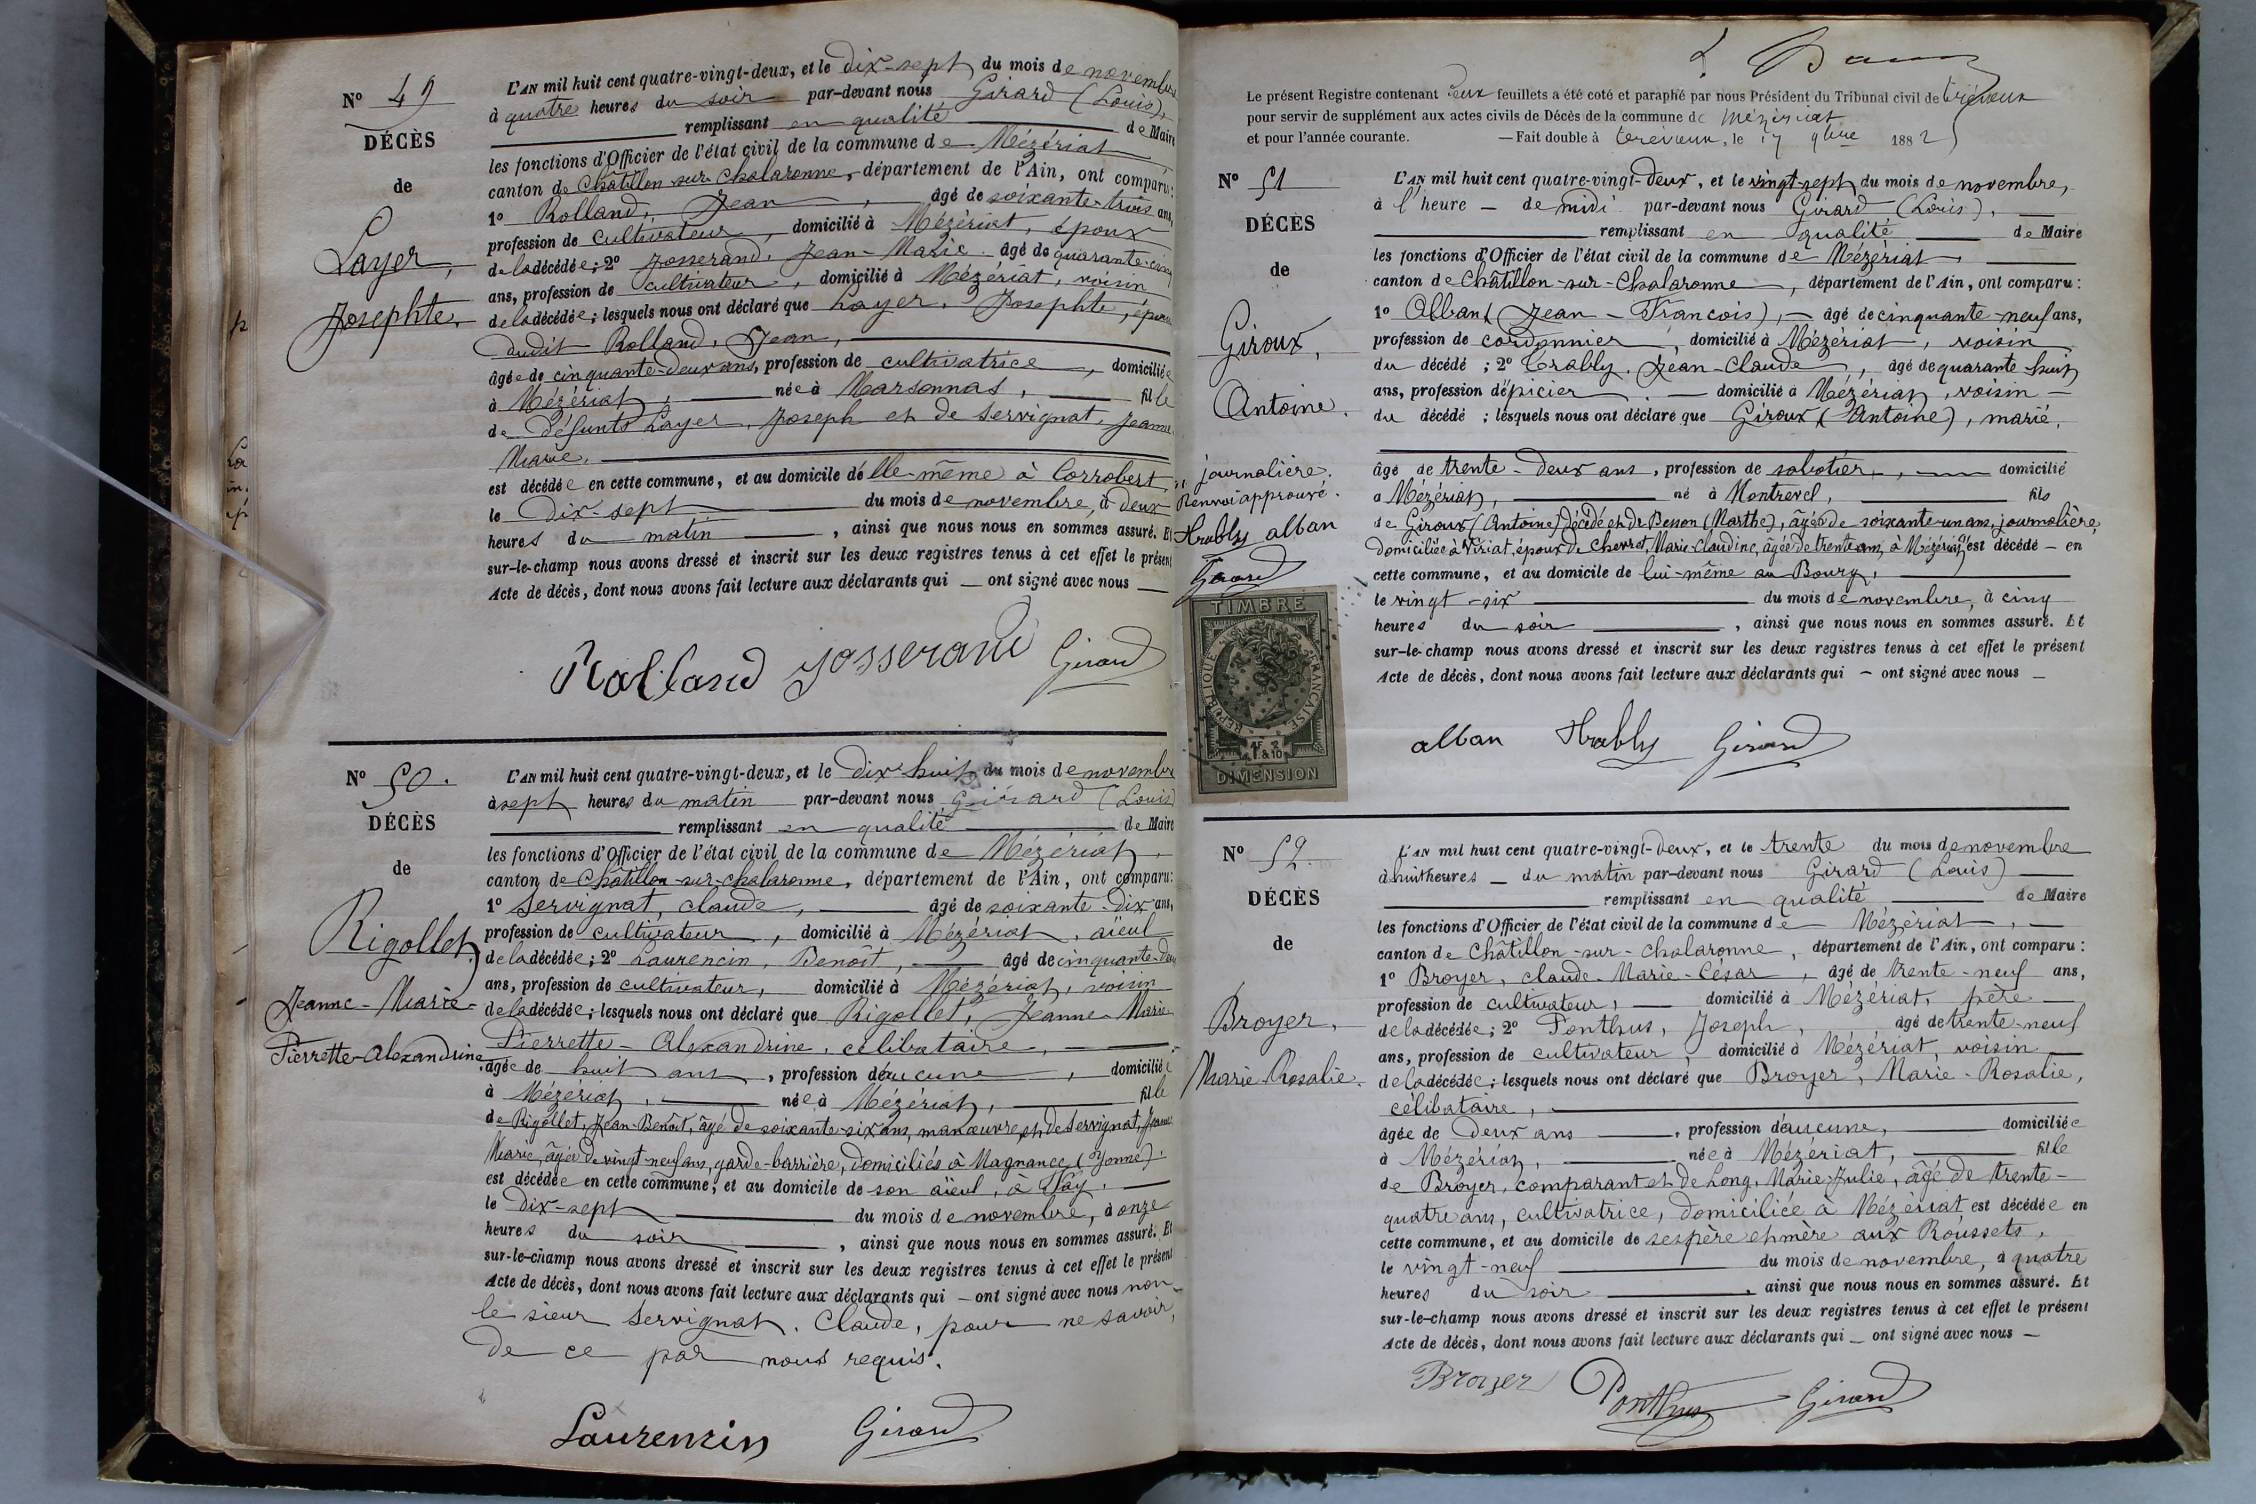 N° 49
DÉCÈS
de
Layer,
Josephte.
L'AN mil huit cent quatre-vingt-deux, et le dix-sept du mois de novembre
à quatre heures du soir par-devant nous Girard (Louis),
remplissant en qualité de Maire
les fonctions d'Officier de l'état civil de la commune de Mézériat,
canton de Châtillon-sur-Chalaronne, département de l'Ain, ont comparu:
1° Rolland, Jean, âgé de soixante-trois ans,
profession de cultivateur, domicilié à Mézériat, époux
de la décédée; 2° Josserand, Jean-Marie âgé de quarante-cinq
ans, profession de cultivateur, domicilié à Mézériat, voisin
de la décédée; lesquels nous ont déclaré que Layer, Josephte, épouse
dudit Rolland, Jean,
âgée de cinquante-deux ans, profession de cultivatrice, domiciliée
à Mézériat, née à Marsonnas, fille
de défunts Layer, Joseph et de Servignat, Jeanne
Marie,
est décédée en cette commune, et au domicile d'elle-même à Corrobert,
le dix-sept du mois de novembre, à deux
heures du matin, ainsi que nous nous en sommes assuré. Et
sur-le-champ nous avons dressé et inscrit sur les deux registres tenus à cet effet le présent
Acte de décès, dont nous avons fait lecture aux déclarants qui — ont signé avec nous —
Rolland Josserand Girard
N° 50.
DÉCÈS
de
Rigollet,
Jeanne-Marie-
Pierrette-Alexandrine
L'AN mil huit cent quatre-vingt-deux, et le dix-huit du mois de novembre
à sept heures du matin par-devant nous Girard (Louis)
remplissant en qualité de Maire
les fonctions d'Officier de l'état civil de la commune de Mézériat,
canton de Châtillon-sur-Chalaronne, département de l'Ain, ont comparu:
1° Servignat, Claude, âgé de soixante-dix ans,
profession de cultivateur, domicilié à Mézériat, aïeul
de la décédée; 2° Laurencin, Benoît, âgé de cinquante-deux
ans, profession de cultivateur, domicilié à Mézériat, voisin
de la décédée; lesquels nous ont déclaré que Rigollet, Jeanne-Marie-
Pierrette-Alexandrine, célibataire,
âgée de huit ans, profession d'aucune, domiciliée
à Mézériat, née à Mézériat, fille
de Rigollet, Jean-Benoît, âgé de soixante-six ans, manœuvre, et de Servignat, Jeanne
Marie, âgée de vingt-neuf ans, garde-barrière, domiciliés à Magnance (Yonne),
est décédée en cette commune, et au domicile de son aïeul, à
le dix-sept du mois de novembre, à onze
heures du soir, ainsi que nous nous en sommes assuré. Et
sur-le-champ nous avons dressé et inscrit sur les deux registres tenus à cet effet le présent
Acte de décès, dont nous avons fait lecture aux déclarants qui — ont signé avec nous non
le sieur Servignat, Claude, pour ne savoir,
de ce par nous requis.
Laurencin Girard
Le présent Registre contenant deux feuillets a été coté et paraphé par nous Président du Tribunal civil de Trévoux
pour servir de supplément aux actes civils de Décès de la commune de Mézériat
et pour l'année courante. — Fait double à Trévoux, le 17 9bre 1882
N° 51
DÉCÈS
de
Giroux,
Antoine.
journalière.
Renvoi approuvé.
Trably alban
Girard
TIMBRE
RÉPUBLIQUE FRANÇAISE
DIMENSION
L'AN mil huit cent quatre-vingt-deux, et le vingt-sept du mois de novembre,
à l'heure — de midi par-devant nous Girard (Louis),
remplissant en qualité de Maire
les fonctions d'Officier de l'état civil de la commune de Mézériat,
canton de Châtillon-sur-Chalaronne, département de l'Ain, ont comparu:
1° Alban (Jean-François), — âgé de cinquante-neuf ans,
profession de cordonnier, domicilié à Mézériat, voisin
du décédé; 2° Trably, Jean-Claude, âgé de quarante-huit
ans, profession d'épicier, — domicilié à Mézériat, voisin —
du décédé; lesquels nous ont déclaré que Giroux (Antoine), marié,
âgé de trente-deux ans, profession de sabotier, domicilié
à Mézériat, né à Montrevel, fils
de Giroux (Antoine) décédé et de Besson (Marthe), âgée de soixante-un ans, journalière,
domiciliée à Viriat, époux de Chevrot, Marie-Claudine, âgée de trente ans, à Mézériat, est décédé — en
cette commune, et au domicile de lui-même au Bourg,
le vingt-six du mois de novembre, à cinq
heures du soir, ainsi que nous nous en sommes assuré. Et
sur-le-champ nous avons dressé et inscrit sur les deux registres tenus à cet effet le présent
Acte de décès, dont nous avons fait lecture aux déclarants qui — ont signé avec nous —
alban Trably Girard
N° 52.
DÉCÈS
de
Broyer,
Marie-Rosalie.
L'AN mil huit cent quatre-vingt-deux, et le trente du mois de novembre
à huit heures — du matin par-devant nous Girard (Louis)
remplissant en qualité de Maire
les fonctions d'Officier de l'état civil de la commune de Mézériat,
canton de Châtillon-sur-Chalaronne, département de l'Ain, ont comparu:
1° Broyer, Claude-Marie-César, âgé de trente-neuf ans,
profession de cultivateur, — domicilié à Mézériat, père —
de la décédée; 2° Ponthus, Joseph, âgé de trente-neuf
ans, profession de cultivateur, domicilié à Mézériat, voisin
de la décédée; lesquels nous ont déclaré que Broyer, Marie-Rosalie,
célibataire,
âgée de deux ans, profession d'aucune, domiciliée
à Mézériat, née à Mézériat, fille
de Broyer, comparant et de Long, Marie-Julie, âgé de trente-
quatre ans, cultivatrice, domiciliée à Mézériat est décédée en
cette commune, et au domicile de ses père et mère aux Roussets,
le vingt-neuf du mois de novembre, à quatre
heures du soir, ainsi que nous nous en sommes assuré. Et
sur-le-champ nous avons dressé et inscrit sur les deux registres tenus à cet effet le présent
Acte de décès, dont nous avons fait lecture aux déclarants qui — ont signé avec nous —
Broyer Ponthus Girard